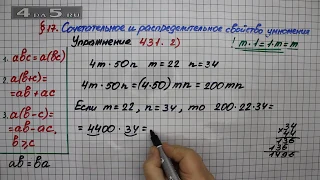 4 АД 5.RU
§ 17. Сочетательное и распределительное свойство умножения
Упражнение 431. 2)
! m·1=1·m=m
1. abc=a(bc)
2. a(b+c)=
=ab+ac
3. a(b-c)=
=ab-ac,
b>c
ab=ba
4m·50n   m=22   n=34
4m·50n=(4·50)mn=200mn
Если m=22, n=34, то 200·22·34=
=4400·34=
34
44
136
136
1496